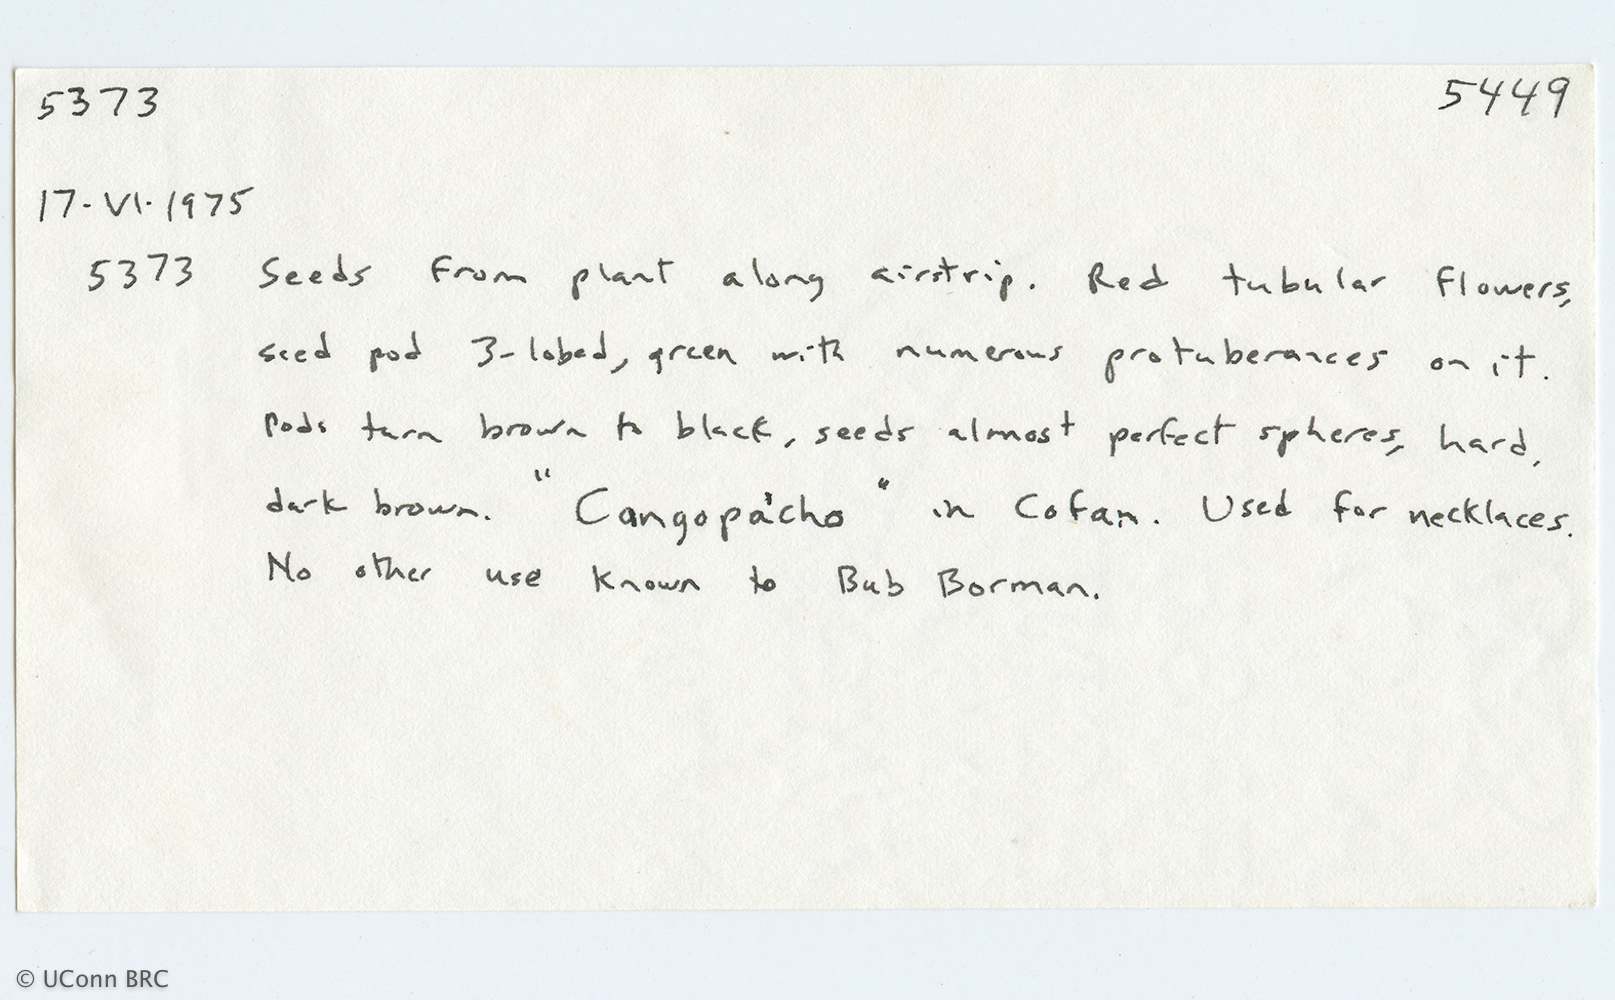 5373 5449
17-VI-1975
5373 Seeds from plant along airstrip. Red tubular flowers,
seed pod 3-lobed, green with numerous protuberances on it.
Pods turn brown to black, seeds almost perfect spheres, hard,
dark brown. "Cangopácho" in Cofan. Used for necklaces.
No other use known to Bub Borman.
© UConn BRC